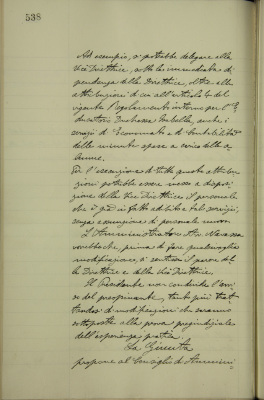 538
Ad esempio, si potrebbe delegare alla
Vice Direttrice, sotto la immediata di-
pendenza della Direttrice, oltre alle
attribuzioni di cui all'articolo del
vigente Regolamento interno per l'E-
ducatorio Duchessa Isabella, anche i
servizi di Economato e di Contabilità
delle minute spese a carico della
Per l'esecuzione di tutte queste attribu-
zioni potrebbe essere messo a disposi-
zione della Vice Direttrice il personale
che è già di fatto adibito a tali servizi,
senza assunzione di personale nuovo.
L'Amministratore
vorrebbe che, prima di fare qualsivoglia
modificazione, si sentisse il parere del-
la Direttrice e della Vice Direttrice.
Il Presidente non condivide l'avvi-
so del preopinante, tanto più trat-
tandosi di modificazioni che saranno
sottoposte alla prova pregiudiziale
dell'esperienza pratica.
La Giunta
propone al Consiglio di Ammini-